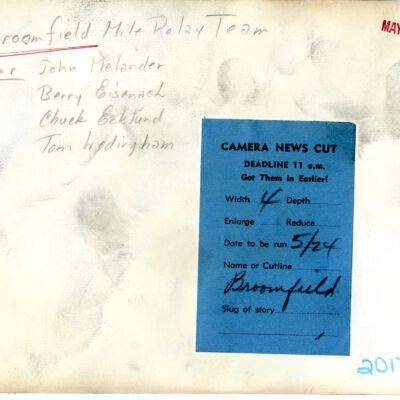 Broomfield Mile Relay Team
MAY
John Melander
Berry Eisenach
Chuck Ecklund
Tom Lydingham
CAMERA NEWS CUT
DEADLINE 11 a.m.
Get Them in Earlier!
Width 4 Depth
Enlarge Reduce
Date to be run 5/24
Name or Cutline
Broomfield
Slug of story
201